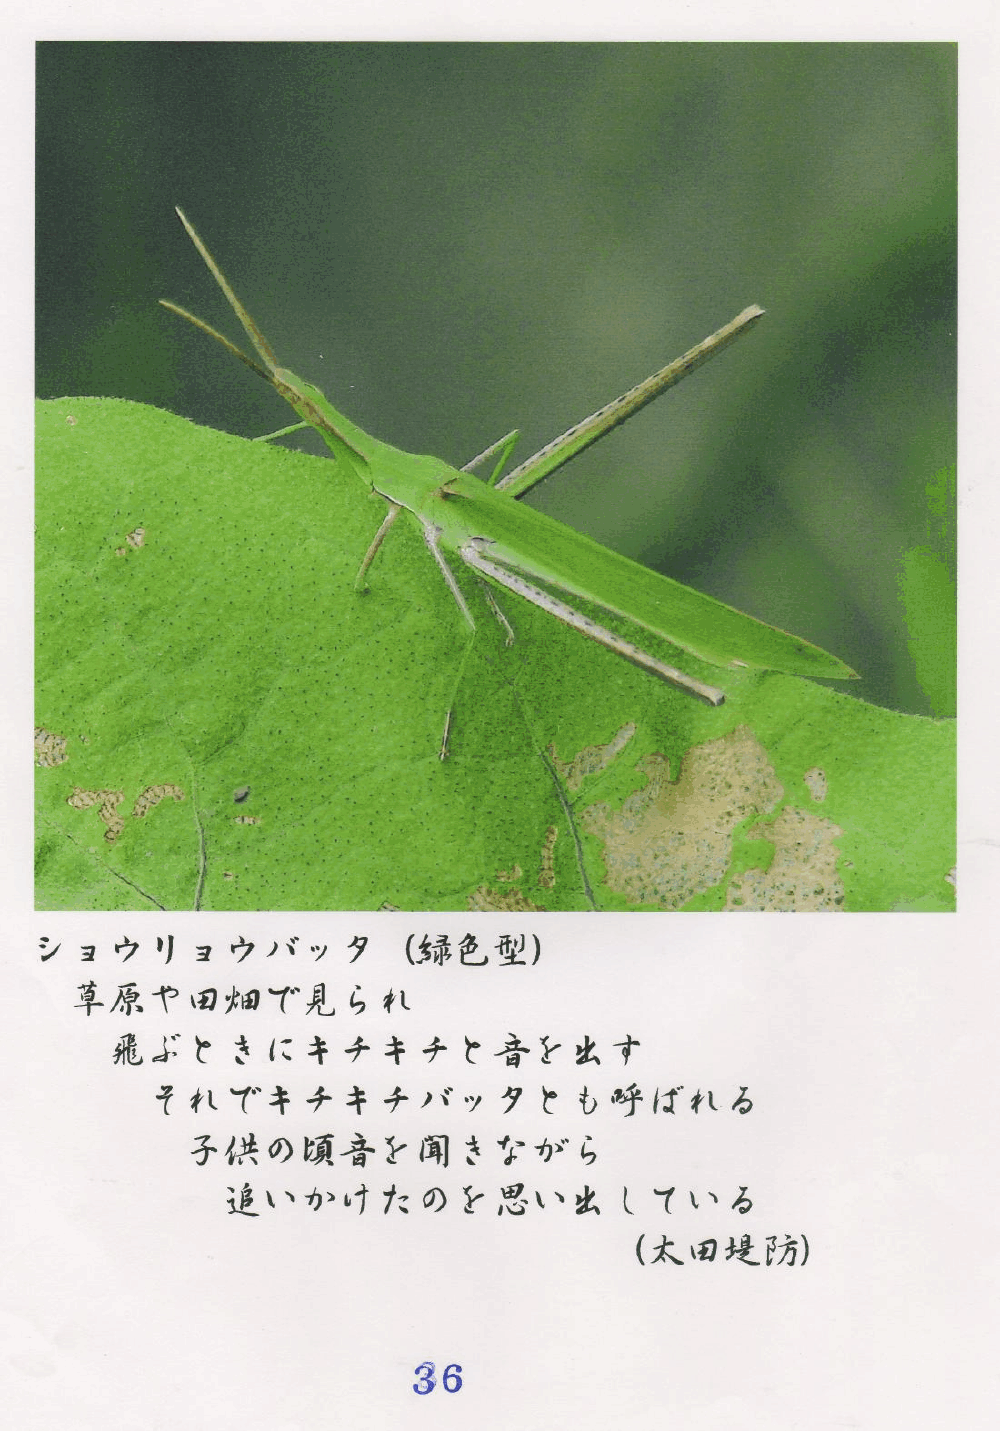 ショウリョウバッタ (緑色型)
草原や田畑で見られ
飛ぶときにキチキチと音を出す
それでキチキチバッタとも呼ばれる
子供の頃音を聞きながら
追いかけたのを思い出している
(太田堤防)
36